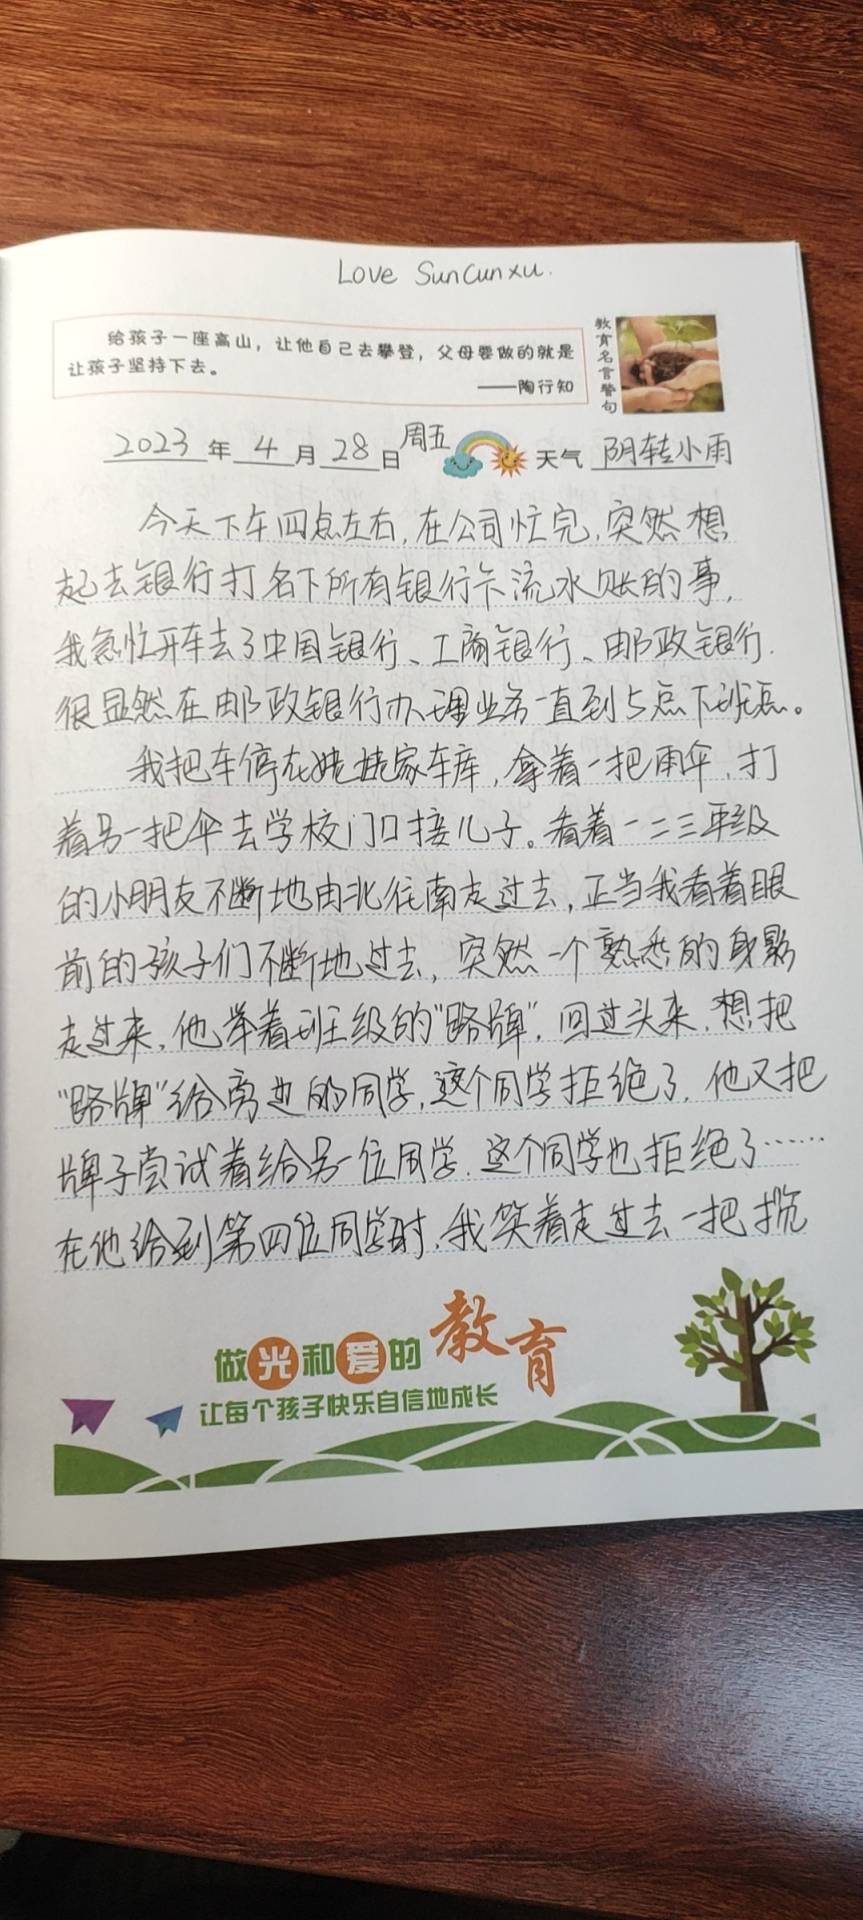 Love SunCunxu.
给孩子一座高山，让他自己去攀登，父母要做的就是
让孩子坚持下去。
——陶行知
教育名言警句
2023年4月28日周五 天气 阴转小雨
今天下午四点左右,在公司忙完,突然想
起去银行打名下所有银行卡流水账的事,
我急忙开车去了中国银行、工商银行、邮政银行.
很显然在邮政银行办理业务一直到5点下班点。
我把车停在姥姥家车库,拿着一把雨伞,打
着另一把伞去学校门口接儿子。看着一二三年级
的小朋友不断地由北往南走过去,正当我看着眼
前的孩子们不断地过去,突然一个熟悉的身影
走过来,他举着班级的"路牌",回过头来,想把
"路牌"给旁边的同学,这个同学拒绝了,他又把
牌子尝试着给另一位同学,这个同学也拒绝了……
在他给到第四位同学时,我笑着走过去一把揽
做光和爱的教育
让每个孩子快乐自信地成长